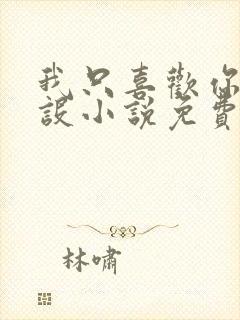 我只喜歡你
設小說免費
林嘯